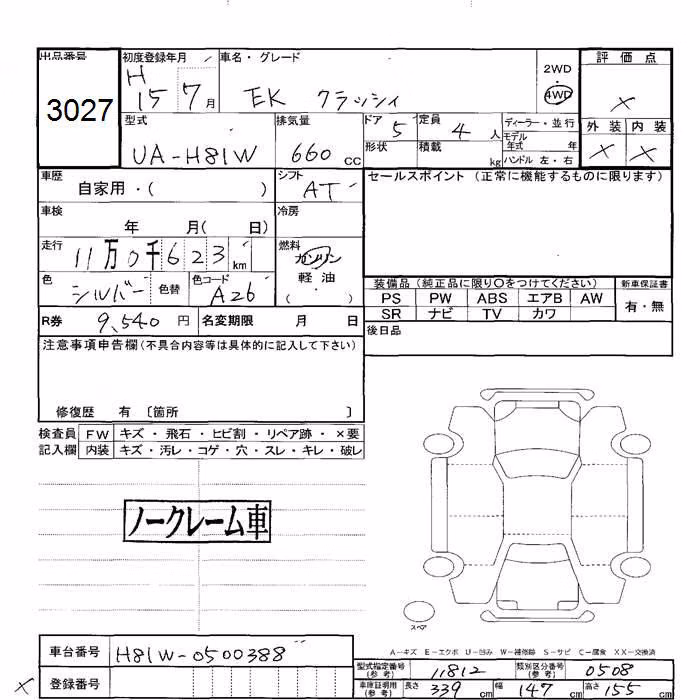 出品番号 初度登録年月 車名・グレード 2WD 評価点
3027 H 15 7月 EK クラッシィ 4WD ×
型式 排気量 ドア 定員 ディーラー・並行 外装 内装
UA-H81W 660 CC 5 4人 モデル年式 年 × ×
形状 積載 kg ハンドル 左・右
車歴 自家用・( ) シフト AT セールスポイント (正常に機能するものに限ります)
車検 年 月( 日) 冷房
走行 11万0千623km 燃料 ガソリン
軽・油
( )
色 シルバー 色替 色コード A26
装備品 (純正品に限り〇をつけてください) 新車保証書
PS PW ABS エアB AW 有・無
SR ナビ TV カワ
R券 9,540円 名変期限 月 日 後日品
注意事項申告欄(不具合内容等は具体的に記入して下さい)
修復歴 有 〔箇所 〕
検査員 FW キズ・飛石・ヒビ割・リペア跡・×要
記入欄 内装 キズ・汚レ・コゲ・穴・スレ・キレ・破レ
ノークレーム車
スペア
A-キズ E-エクボ U-凹み W-補修跡 S-サビ C-腐食 XX-交換済
車台番号 H81W-0500388
型式指定番号(参考) 11812 類別区分番号(参考) 0508
× 登録番号
車庫証明用(参考) 長さ 339cm 幅 147cm 高さ 155cm